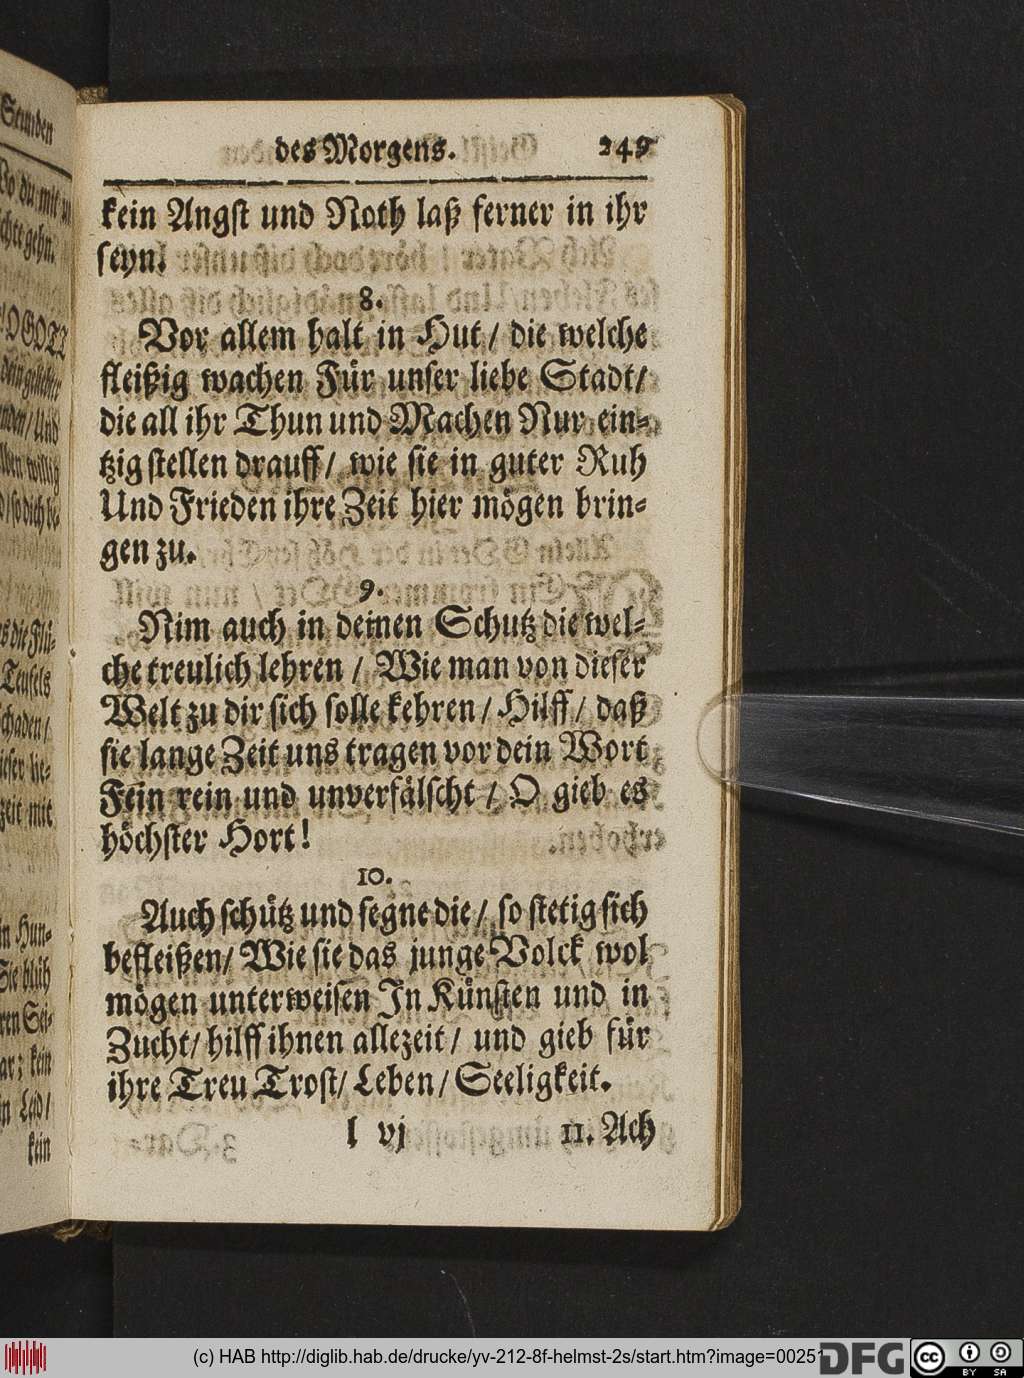 Stunden
des Morgens. 249
kein Angst und Noth laß ferner in ihr
seyn.
8.
Vor allem halt in Hut / die welche
fleißig wachen Für unser liebe Stadt/
die all ihr Thun und Machen Nur ein-
tzig stellen drauff / wie sie in guter Ruh
Und Frieden ihre Zeit hier mögen brin-
gen zu.
9.
Nim auch in deinen Schutz die wel-
che treulich lehren / Wie man von dieser
Welt zu dir sich solle kehren / Hilff / daß
sie lange Zeit uns tragen vor dein Wort
Fein rein und unverfälscht / O gieb es
höchster Hort!
10.
Auch schütz und segne die / so stetig sich
befleißen/ Wie sie das junge Volck wol
mögen unterweisen In Künsten und in
Zucht/ hilff ihnen allezeit / und gieb für
ihre Treu Trost/ Leben / Seeligkeit.
l vj 11. Ach
du mit
gehn.
die Flü-
Teufels
schaden/
dieser lie-
zeit mit
in Hun-
Sie blüh
kein
in Leid/
kein
(c) HAB http://diglib.hab.de/drucke/yv-212-8f-helmst-2s/start.htm?image=00251
DFG
cc BY SA